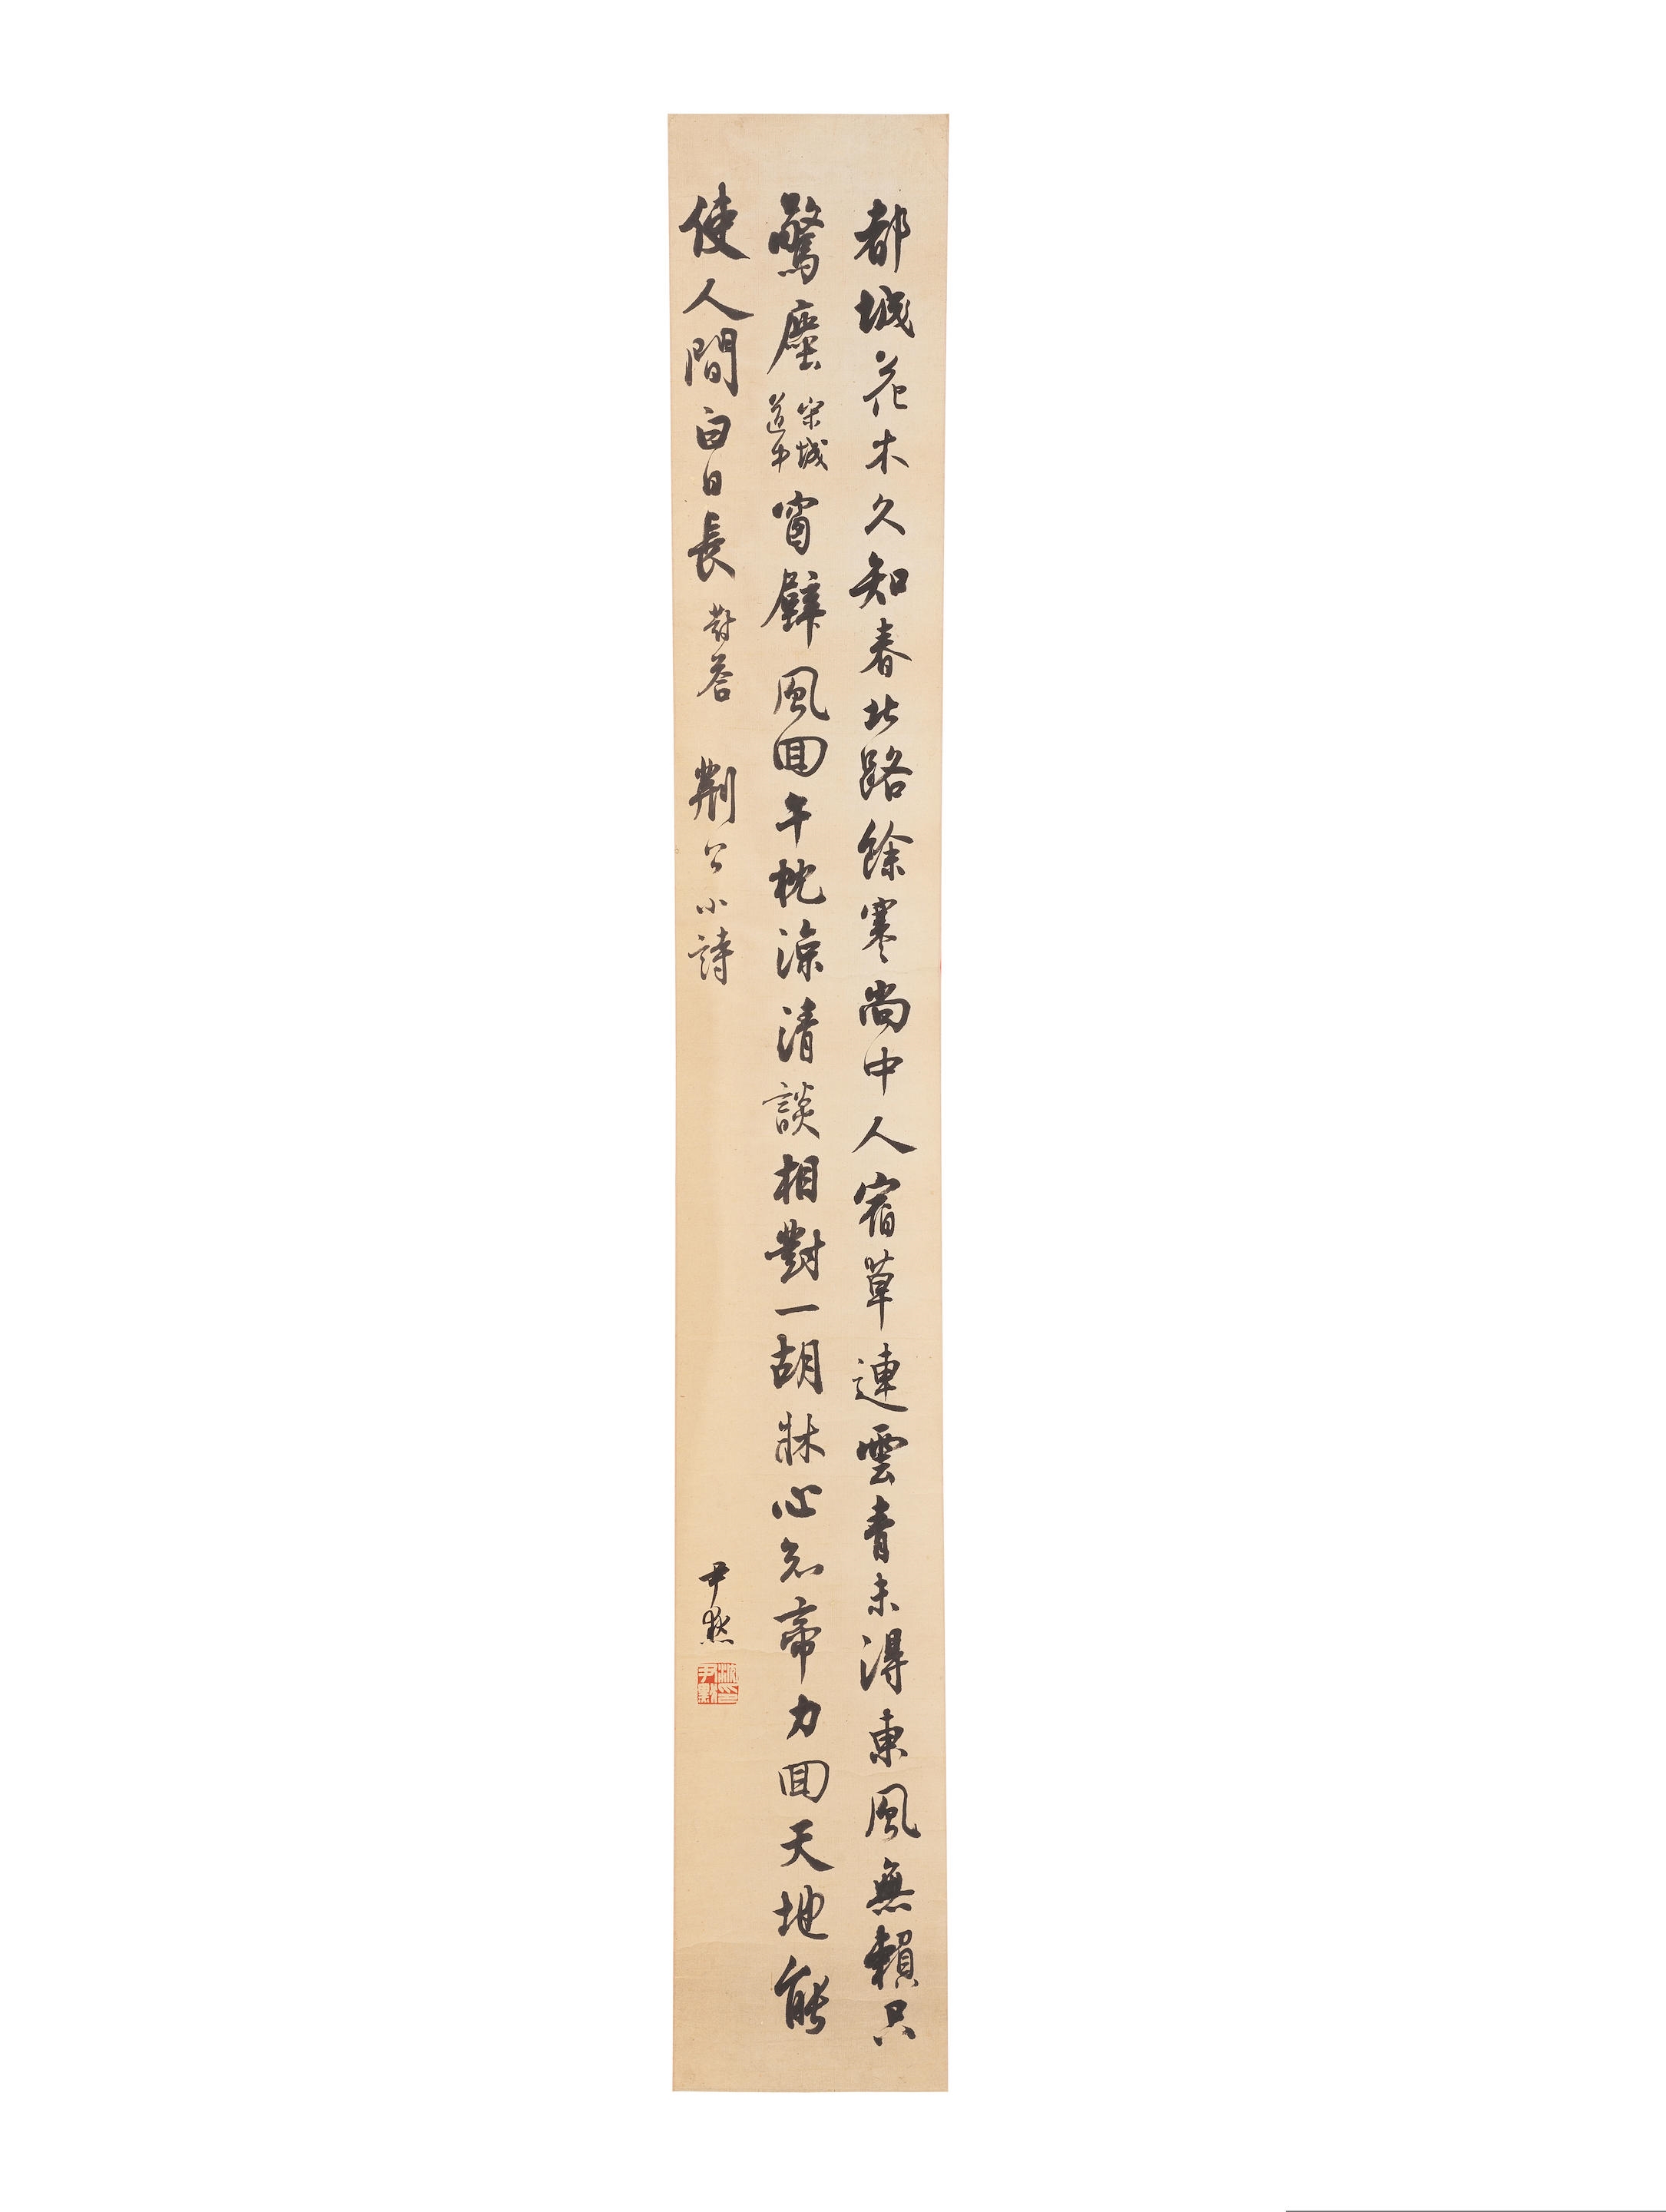 都城花木久知春北路餘寒尚中人宿草連雲青未得東風無賴只
驚塵
宋城
道中
風回午枕涼清談相對一胡牀心帝力回天地能
使人間白日長
荆公小詩
尹默